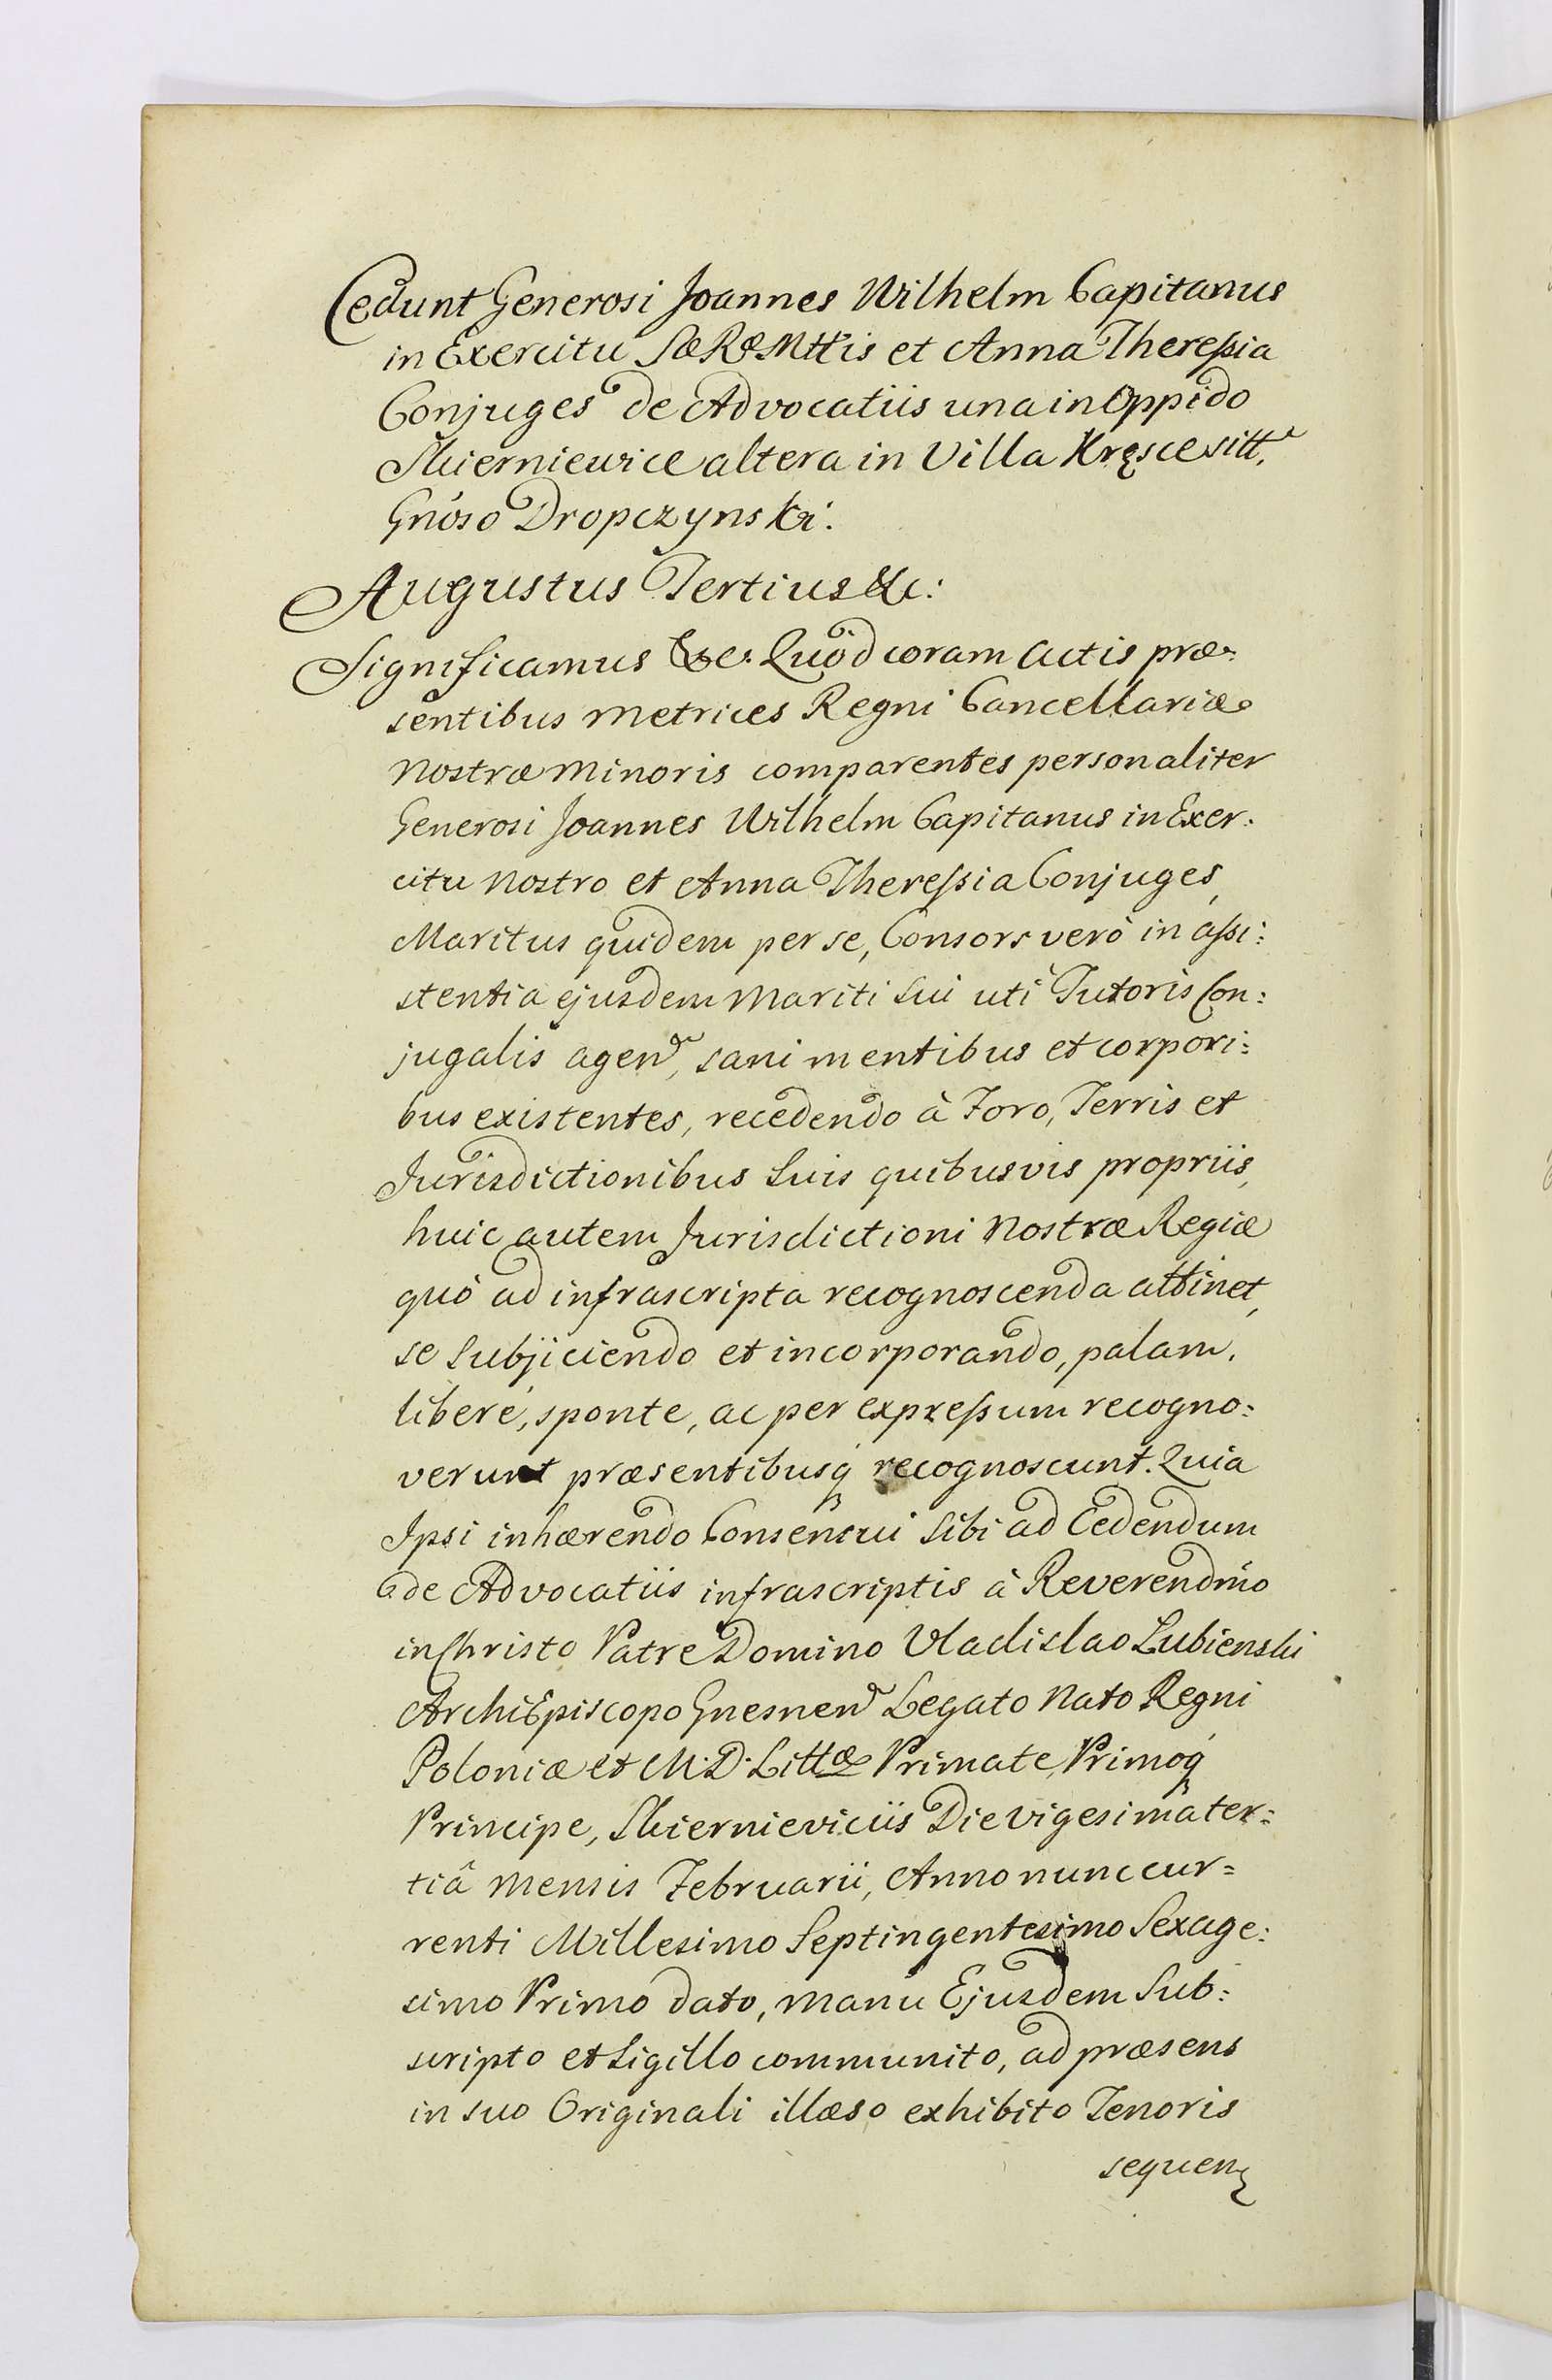 Cedunt Generosi Joannes Wilhelm Capitanus
in Exercitu SæRæMttis et Anna Theressia
Conjuges de Advocatiis una in Oppido
Skierniewice altera in Villa Kręsce sitt.
Gnoso Dropczynski.
Augustus Tertius &c:
Significamus &c. Quod coram Actis præ-
sentibus Metrices Regni Cancellariæ
Nostræ Minoris comparentes personaliter
Generosi Joannes Wilhelm Capitanus in Exer-
citu Nostro et Anna Theressia Conjuges,
Maritus quidem per se, Consors verò in assi:
stentia ejusdem Mariti Sui uti Tutoris Con:
jugalis agen, sani mentibus et corpori:
bus existentes, recedendo à Foro, Terris et
Jurisdictionibus Suis quibusvis propriis,
huic autem Jurisdictioni Nostræ Regiæ
quò ad infrascripta recognoscenda attinet,
se Subjiciendo et incorporando, palam,
liberé, sponte, ac per expressum recogno:
verunt præsentibusq recognoscunt. Quia
Ipsi inhærendo Consensui Sibi ad Cedendum
de Advocatiis infrascriptis à Reverendmo
in Christo Patre Domino Vladislao Lubienski
ArchiEpiscopo Gnesnen Legato Nato Regni
Poloniæ et M. D. Littæ Primate, Primoq
Principe, Skierniewiciis Die vigesima ter:
tiâ Mensis Februarii, Anno nunc cur=
renti Millesimo Septingentesimo Sexage:
simo Primo dato, manu Ejusdem Sub:
scripto et Sigillo communito, ad præsens
in suo Originali illæso exhibito Tenoris
sequen